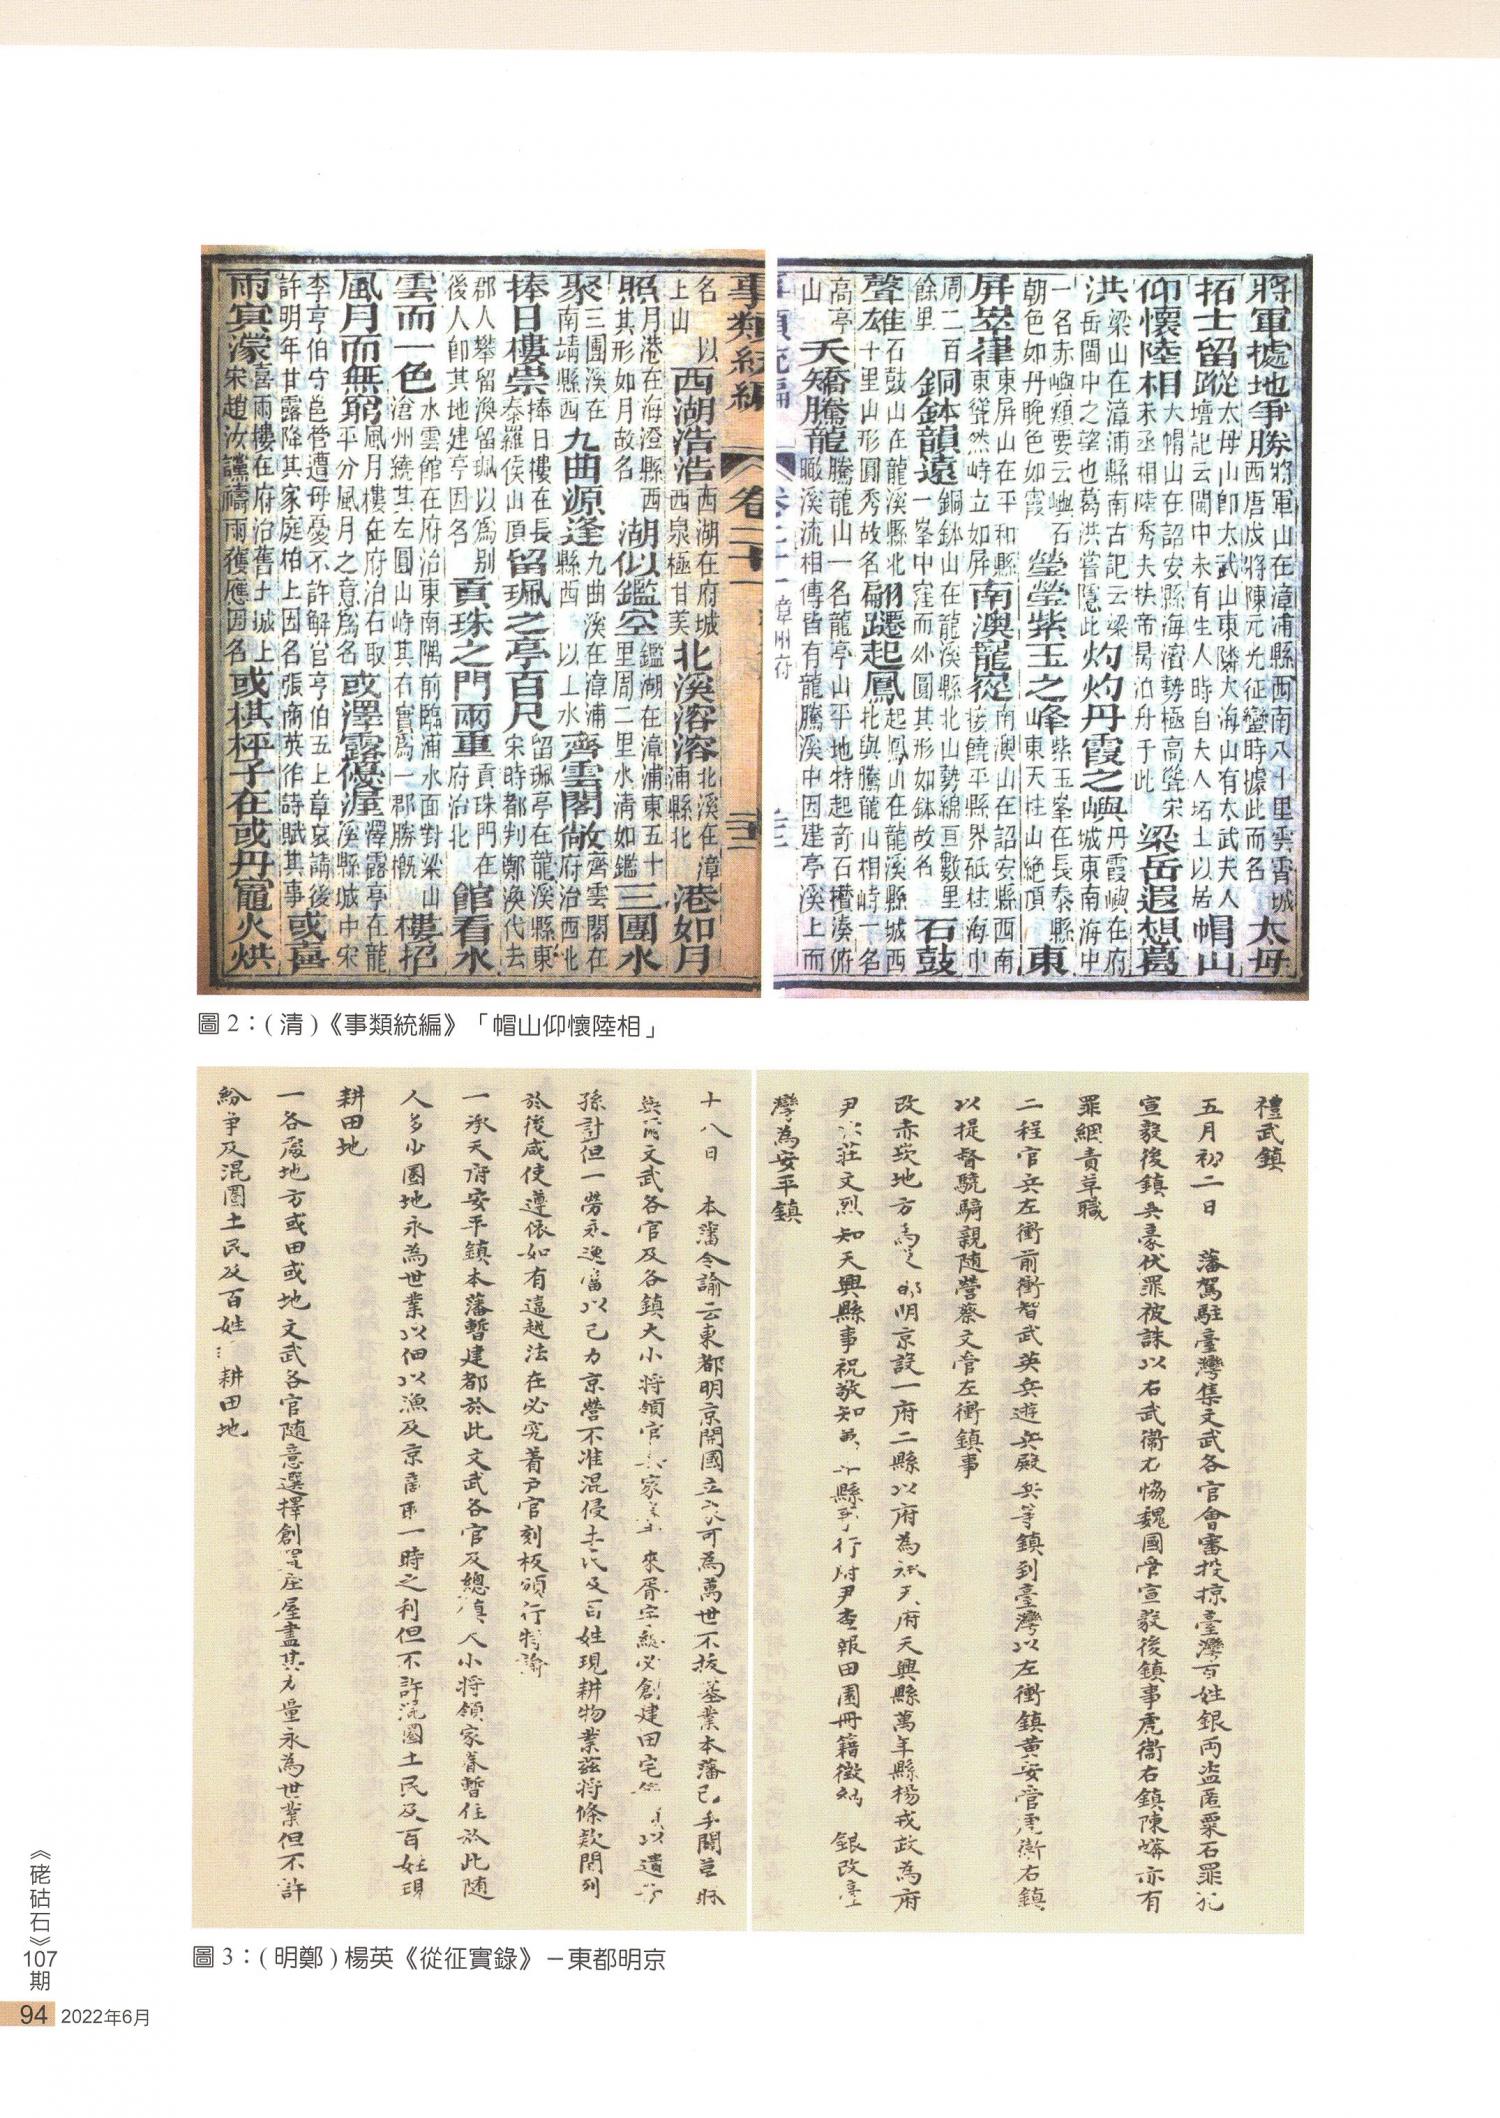 將軍據地爭勝將軍山在漳浦縣西南八十里雲霄城西唐戍將陳元光征蠻時據此而名太母
拓士留蹤太母山卽太武山東隣大海山有太武夫人壇記云閩中未有生人時自夫人拓土以居帽山
仰懷陸相大帽山在詔安縣海濱勢極高聳宋末丞相陸秀夫扶帝昺泊舟于此梁岳遐想葛
洪梁山在漳浦縣南古記云梁岳閩中之望也葛洪嘗隱此灼灼丹霞之嶼丹霞嶼在府城東南海中
一名赤嶼類要云嶼石朝色如丹晚色如霞瑩瑩紫玉之峰紫玉峯在長泰縣山東天柱山絕頂東
屏崒嵂東屏山在平和縣東聳然峙立如屏南澳巃嵸南澳山在詔安縣西南接饒平縣界砥柱海中
周二百餘里銅鉢韻遠銅鉢山在龍溪縣北山勢綿亘數里一峯中窪而外圓其形如鉢故名石鼓
聲雄石鼓山在龍溪縣北十里山形圓秀故名翩躚起鳳起鳳山在龍溪縣城西北與騰龍山相峙一名
高亭山夭矯騰龍騰龍山一名龍亭山平地特起奇石櫕湊俯瞰溪流相傳皆有龍騰溪中因建亭溪上而
事類統編 卷二十一 漳州府
名以上山西湖浩浩西湖在府城西泉極甘美北溪溶溶北溪在漳浦縣北港如月
照月港在海澄縣西其形如月故名湖似鑑空鑑湖在漳浦東五十里周二里水淸如鑑三團水
聚三團溪在南靖縣西九曲源逢九曲溪在漳浦縣西以上水齊雲閣敞齊雲閣在府治西北
捧日樓崇捧日樓在長泰羅侯山頂留珮之亭百尺留珮亭在龍溪縣東宋時郡判鄭渙代去
郡人攀留渙留珮以爲別後人卽其地建亭因名貢珠之門兩重貢珠門在府治北館看水
雲而一色水雲館在府治東南隅前臨浦水面對梁山滄州繞其左圓山峙其右實爲一郡勝槪樓招
風月而無窮風月樓在府治右取平分風月之意爲名或澤露優渥澤露亭在龍溪縣城中宋
李亨伯守邑管遭母憂不許解官亨伯五上章哀請後許明年甘露降其家庭柏上因名張商英作詩賦其事或喜
雨㝠濛喜雨樓在府治舊土城上宋趙汝讜禱雨獲應因名或棋枰子在或丹竈火烘
圖2：(清)《事類統編》「帽山仰懷陸相」
禮武鎮
五月初二日 藩駕駐臺灣集文武各官會審投掠臺灣百姓銀両盜匿粟石罪犯
宣毅後鎮吳豪伏罪被誅以右武衞尤恊魏國管宣毅後鎮事虎衞右鎮陳蟒亦有
罪綑責革職
二程官兵左衝前衝智武英兵遊兵殿兵等鎮到臺灣以左衝鎮黃安管虎衞右鎮
以提督驍騎親隨營蔡文管左衝鎮事
改赤崁地方為 明京設一府二縣以府為承天府天興縣萬年縣楊戎政為府
尹以莊文烈知天興縣事祝敬知 縣事行府尹查報田園冊籍徵納 銀改臺
灣為安平鎮
十八日 本藩令諭云東都明京開國立家可為萬世不拔基業本藩已手闢草昧
與 文武各官及各鎮大小將領官兵家 來胥宇總必創建田宅 以遺
孫計但一勞永逸當以己力京營不准混侵土民及百姓現耕物業茲將條款開列
於後咸使遵依如有違越法在必究着戶官刻板頒行特諭
一承天府安平鎮本藩暫建都於此文武各官及總鎮大小將領家眷暫住於此隨
人多少圈地永為世業以佃以漁及京商取一時之利但不許混圈土民及百姓現
耕田地
一各處地方或田或地文武各官隨意選擇創置庄屋盡其力量永為世業但不許
紛爭及混圈土民及百姓 耕田地
圖3：(明鄭) 楊英《從征實錄》－東都明京
《硓𥑮石》107期
94 2022年6月